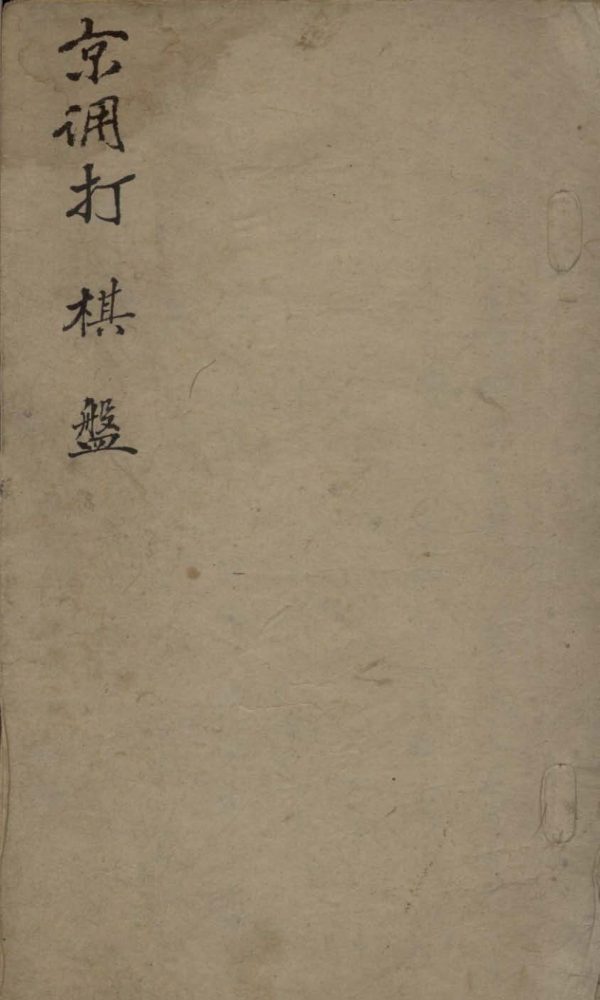 京调打棋盤